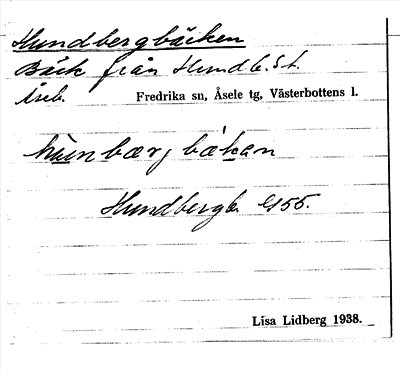 Hundbergbäcken
Bäck från Hundb.st.
Fredrika sn, Åsele tg, Västerbottens l.
Hundbergb. 155.
Lisa Lidberg 1938.